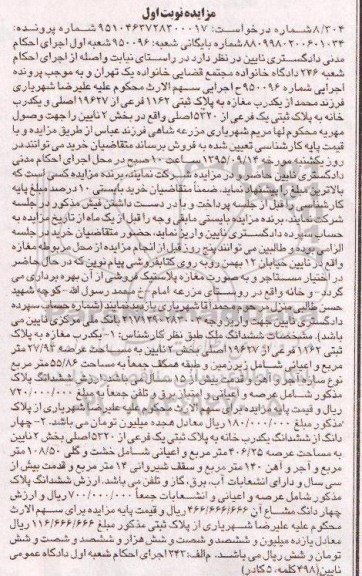 مزایده نوبت اول
۸/۳۰۴ شماره درخواست: ۹۵۱۰۴۶۳۷۲۸۳۰۰۰۱۷ شماره پرونده:
۸۸۰۹۹۸۰۲۰۰۶۰۱۰۳۴ شماره بایگانی شعبه: ۹۵۰۰۹۶ شعبه اول اجرای احکام
مدنی دادگستری نایین در نظر دارد در راستای نیابت واصله از اجرای احکام
شعبه ۲۴۶ دادگاه خانواده مجتمع قضایی خانواده یک تهران و به موجب پرونده
اجرایی شماره ۹۵۰۰۹۶ ج اجرایی سهم الارث محکوم علیه علیرضا شهریاری
فرزند محمد از یکدرب مغازه به پلاک ثبتی ۱۱۶۲ فرعی از ۱۹۶۲۷ اصلی و یکدرب
خانه به پلاک ثبتی یک فرعی از ۵۳۲۰ اصلی واقع در بخش ۲ نایین را جهت وصول
مهریه محکوم لها مریم شهریاری مزرعه شاهی فرزند عباس از طریق مزایده و با
قیمت پایه کارشناسی تعیین شده به فروش برساند متقاضیان خرید می توانند در
روز یکشنبه مورخه ۱۳۹۵/۰۹/۱۴ ساعت ۱۰ صبح در محل اجرای احکام مدنی
دادگستری نایین حاضر و در مزایده شرکت نمایند، برنده مزایده کسی است که
بالاترین مبلغ را پیشنهاد نماید، ضمناً متقاضیان خرید بایستی ۱۰ درصد مبلغ پایه
کارشناسی را قبل از جلسه پرداخت و با در دست داشتن فیش مذکور در جلسه
شرکت نمایند، برنده مزایده بایستی مابقی وجه را قبل از یک ماه از تاریخ مزایده به
حساب سپرده دادگستری نایین واریز نماید، حضور متقاضیان خرید در جلسه
الزامی بوده و طالبین می توانند پنج روز قبل از انجام مزایده از محل مربوطه مغازه
واقع در نایین خیابان ۱۲ بهمن روبه روی کتابفروشی پیام نوین که در حال حاضر
در اختیار مستاجر و به صورت مغازه پلاستیک فروشی از آن بهره برداری می
گردد - و خانه واقع در روستای مزرعه امام خ محمد رسول الله - کوچه شهید
حسن طالبی منزل مرحوم محمدآقا شهریاری بازدید نمایند (شماره حساب سپرده
دادگستری نایین جهت واریز وجه بانک ملی مرکزی نایین می
باشد). مشخصات ششدانگ ملک طبق نظر کارشناس: ۱- یکدرب مغازه به پلاک
ثبتی ۱۱۶۲ فرعی از ۱۹۶۲۷ اصلی بخش ۲ نایین به مساحت عرصه ۲۷/۹۳ متر
مربع و اعیانی شامل زیرزمین و طبقه همکف جمعاً به مساحت ۵۵/۸۶ متر مربع
نوع سازه ارزش ششدانگ پلاک
مذکور شامل عرصه و اعیانی و امتیاز برق و تلفن جمعاً به مبلغ ۷۲۰/۰۰۰/۰۰۰
ریال و قیمت پایه مزایده برای سهم الارث محکوم علیه علیرضا شهریاری از پلاک
مذکور مبلغ ۱۸۰/۰۰۰/۰۰۰ ریال معادل هجده میلیون تومان می باشد. ۲- چهار
دانگ از ششدانگ یکدرب خانه به پلاک ثبتی یک فرعی از ۵۳۲۰ اصلی بخش ۲ نایین
به مساحت عرصه ۴۰۶/۲۵ متر مربع و اعیانی شامل خشت و گلی ۱۰۸/۵۰ متر
مربع و آجر و آهن ۱۳۰ متر مربع و سقف شیروانی ۱۴ متر مربع و قدمت بیش از
سی سال و دارای انشعابات آب، برق، گاز و تلفن می باشد. ارزش ششدانگ پلاک
مذکور شامل عرصه و اعیانی و انشعابات جمعاً ۷۰۰/۰۰۰/۰۰۰ ریال و ارزش
چهار دانگ مشاع آن ۴۶۶/۶۶۶/۶۶۶ ریال و قیمت پایه مزایده برای سهم الارث
محکوم علیه علیرضا شهریاری از پلاک ثبتی مذکور مبلغ ۱۱۶/۶۶۶/۶۶۶ ریال
معادل یازده میلیون و ششصد و شصت و شش هزار و ششصد و شصت و شش
تومان و شش ریال می باشد. م الف: ۲۴۳ اجرای احکام شعبه اول دادگاه عمومی
نایین (۴۹۸ کلمه، ۵ کادر)